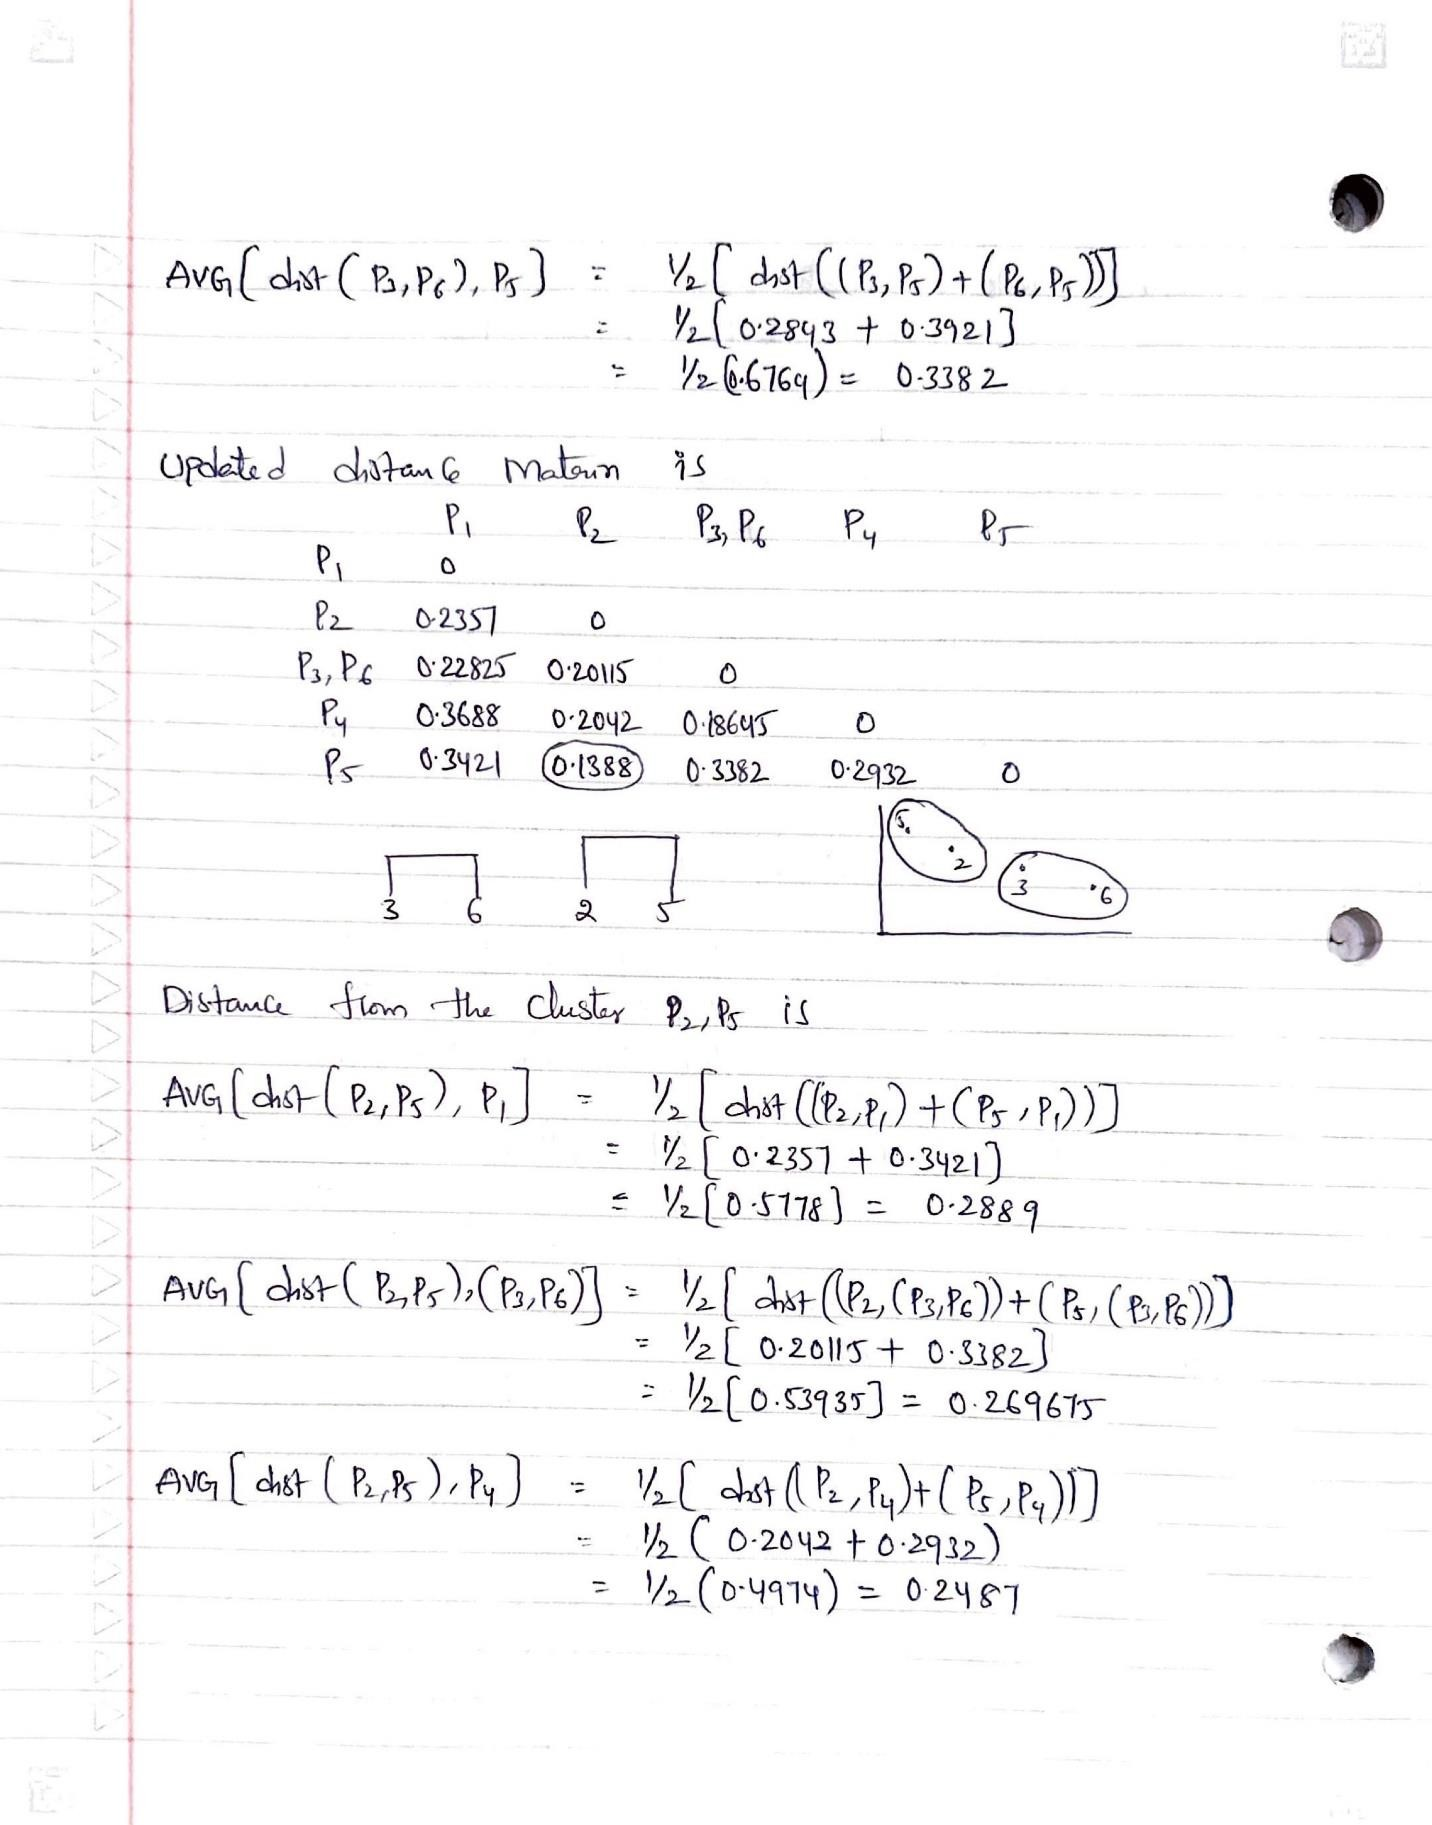 AVG[dist(P3,P6), P5] = 1/2[dist((P3,P5)+(P6,P5))]
= 1/2[0.2843 + 0.3921]
= 1/2(0.6764) = 0.3382
Updated distance Matrix is
P1 P2 P3,P6 P4 P5
P1 0
P2 0.2357 0
P3,P6 0.22825 0.20115 0
P4 0.3688 0.2042 0.18645 0
P5 0.3421 0.1388 0.3382 0.2932 0
5 2 3 6
3 6 2 5
Distance from the cluster P2,P5 is
AVG[dist(P2,P5), P1] = 1/2[dist((P2,P1)+(P5,P1))]
= 1/2[0.2357 + 0.3421]
= 1/2[0.5778] = 0.2889
AVG[dist(P2,P5),(P3,P6)] = 1/2[dist((P2,(P3,P6))+(P5,(P3,P6))]
= 1/2[0.20115 + 0.3382]
= 1/2[0.53935] = 0.269675
AVG[dist(P2,P5), P4] = 1/2[dist((P2,P4)+(P5,P4))]
= 1/2(0.2042 + 0.2932)
= 1/2(0.4974) = 0.2487